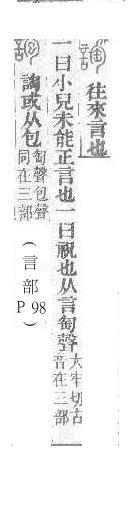 往來言也
一曰小兒未能正言也一曰祝也从言匋聲大牢切古音在三部
䛬或从包匋聲包聲同在三部
（言部 P 98）